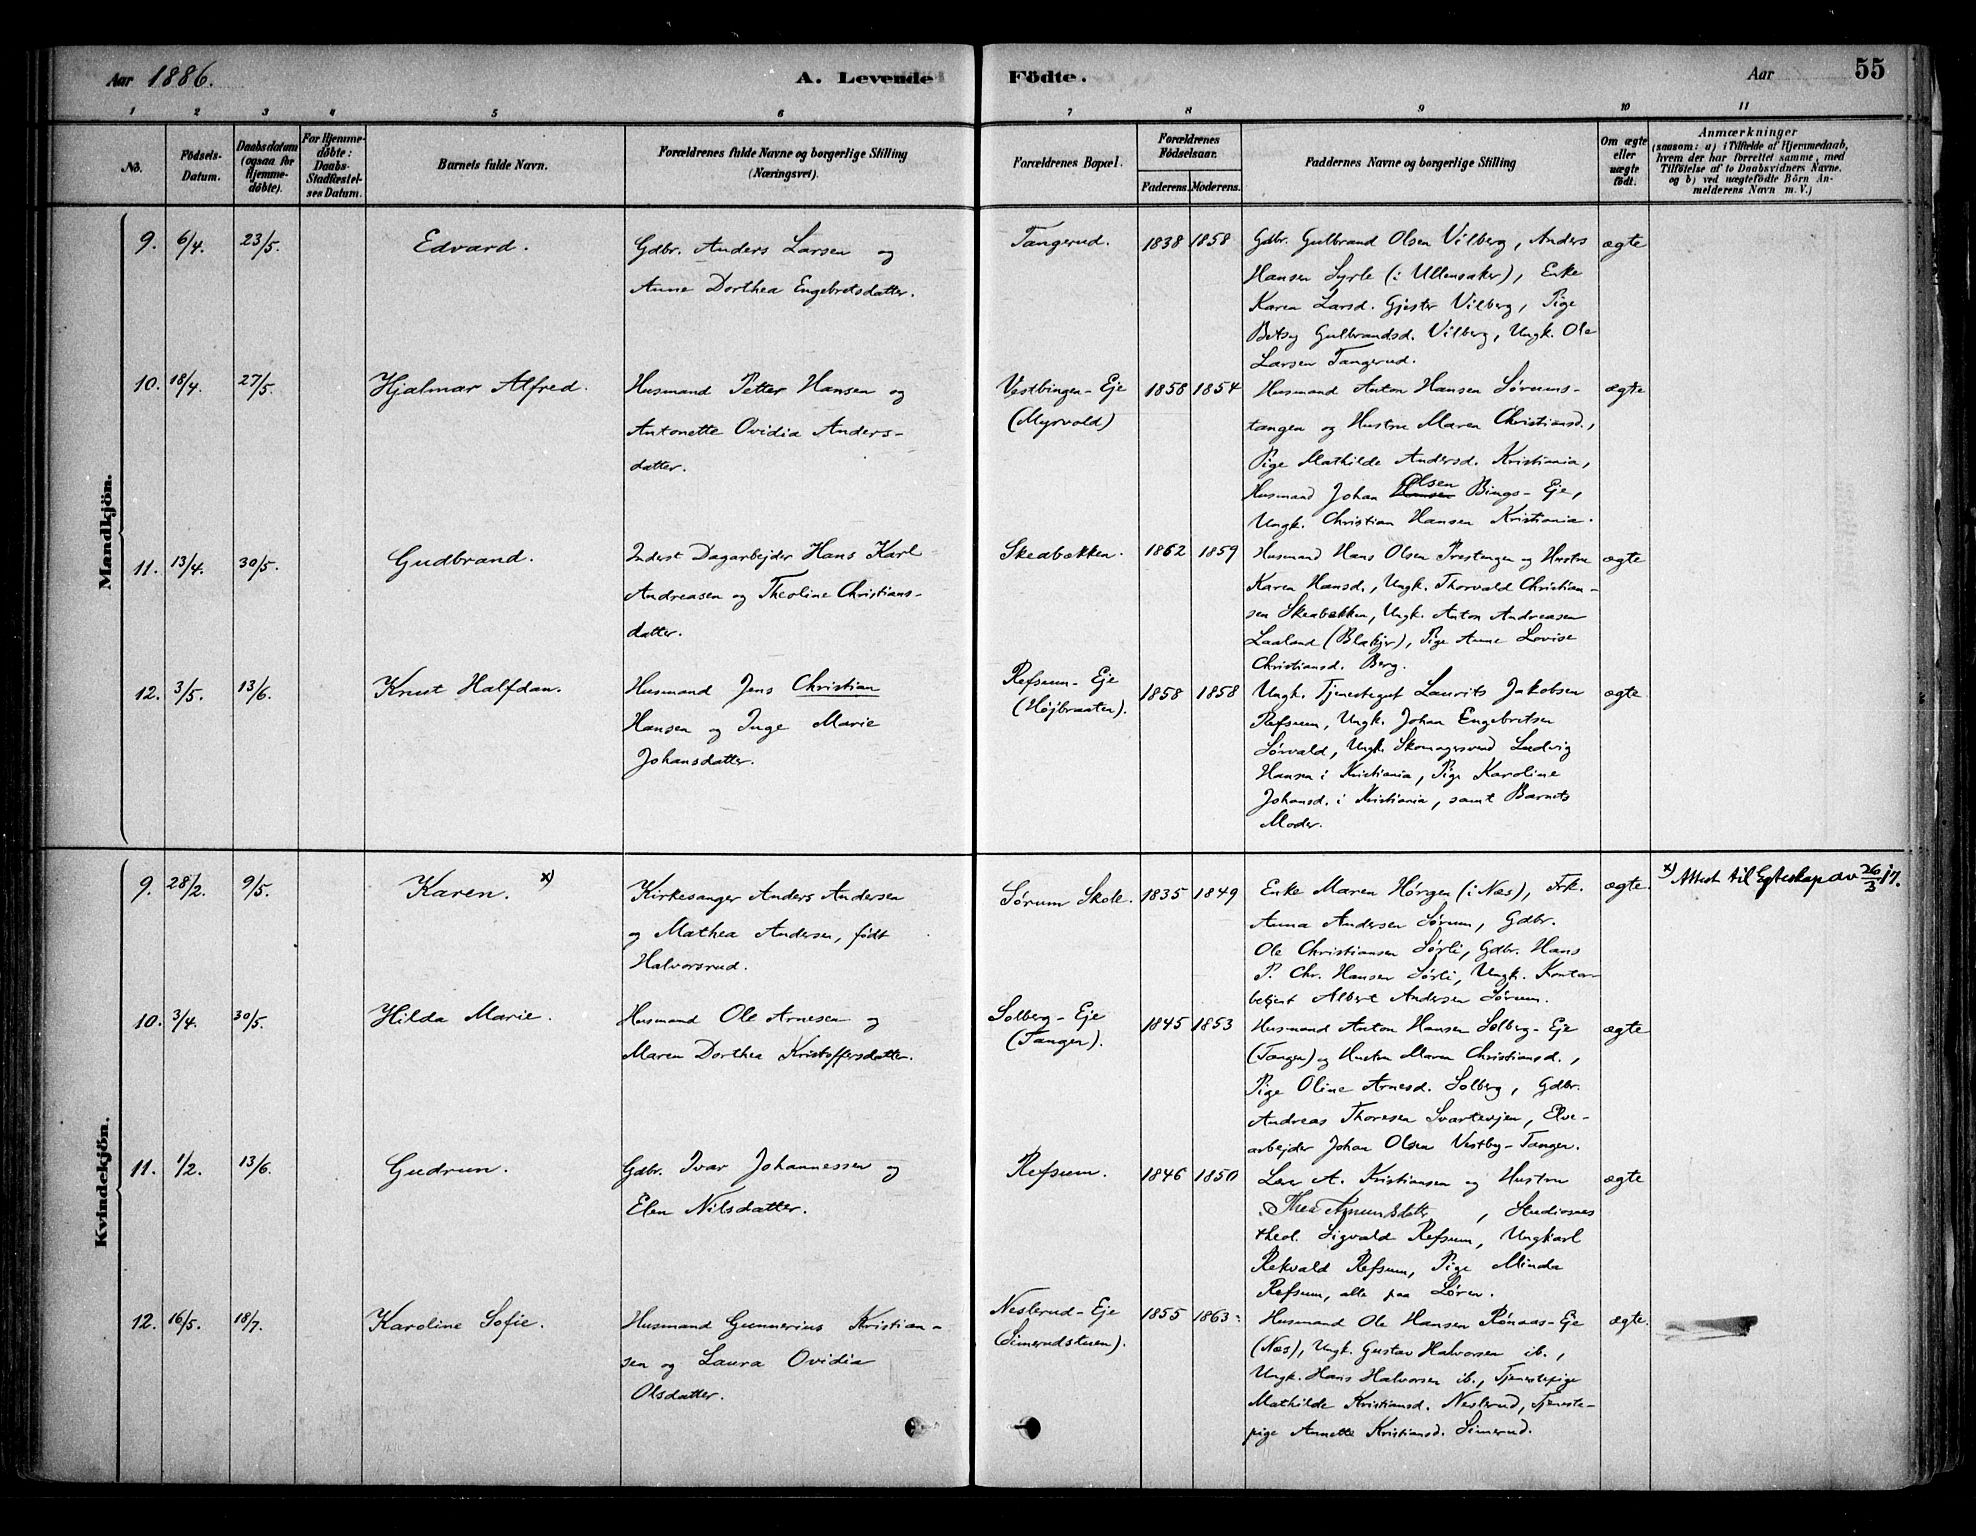 Aar 1886. A. Levende Födte. Aar 55
1 2 3 4 5 6 7 8 9 10 11
No. Födsels-Datum. Daabsdatum (ogsaa for Hjemme-döbte). For Hjemme-döbte: Daabs-Stadfæstel-ses Datum. Barnets fulde Navn. Forældrenes fulde Navne og borgerlige Stilling (Næringsvei). Forældrenes Bopæl. Forældrenes Födselsaar. Faderens. Moderens. Faddernes Navne og borgerlig Stilling Om ægte eller uægte födt.
Anmærkninger
(saasom: a) i Tilfælde af Hjemmedaab,
hvem der har forrettet samme, med
Tilföielse af to Daabsvidners Navne,
og b) ved uægtefödte Börn An-
melderens Navn m. V.)
Mandkjön.
9. 6/4. 23/5. Edvard. Gdbr. Anders Larsen og Tangerud. 1838 1858 Gdbr. Gulbrand Olsen Vilberg, Anders ægte
Anne Dorthea Engebretsdatter. Hansen Syrle (i Ullensaker), Enke
Karen Larsd. Gjester Vilberg, Pige
Betsy Gulbrandsd. Vilberg, Ungk. Ole
Larsen Tangerud.
10. 18/4. 27/5. Hjalmar Alfred. Husmand Petter Hansen og Vestbingen-Eje 1858 1854 Husmand Anton Hansen Sørums- ægte
Antonette Ovidia Anders- (Myrvold) tangen og Hustru Maren Christiansd.,
datter. Pige Mathilde Andersd. Kristiania,
Husmand Johan Hansen Olsen Bings-Eje,
Ungk. Christian Hansen Kristiania.
11. 13/4. 30/5. Gudbrand. Inderst Dagarbejder Hans Karl Skeabækken. 1862 1859 Husmand Hans Olsen Prestengen og Hustru ægte
Andreasen og Theoline Christians- Karen Hansd., Ungk. Thorvald Christian-
datter. sen Skeabækken, Ungk. Anton Andreasen
Laaland (Blakjer), Pige Anne Lovise
Christiansd. Berg.
12. 3/5. 13/6. Knut Halfdan. Husmand Jens Christian Refsum-Eje 1858 1858 Ungk. Tjenestegut Laurits Jakobsen ægte
Hansen og Inge Marie (Højbraaten). Refsum, Ungk. Johan Engebretsen
Johansdatter. Sørvald, Ungk. Skomagersvend Ludvig
Hansen i Kristiania, Pige Karoline
Johansd. i Kristiania, samt Barnets
Moder.
Kvindekjön.
9. 28/2. 9/5. Karen. x) Kirkesanger Anders Andersen Sørum Skole. 1835 1849 Enke Maren Hørgen (i Næs), Frk. ægte. x) Attest til Egteskap av 26/3 17.
og Mathea Andersen, født Anna Andersen Sørum, Gdbr.
Halvorsrud. Ole Christiansen Sørli, Gdbr. Hans
P. Chr. Hansen Sørli, Ungk. Kontor-
betjent Albert Andersen Sørum.
10. 3/4. 30/5. Hilda Marie. Husmand Ole Arnesen og Solberg-Eje 1845 1853 Husmand Anton Hansen Solberg-Eje ægte
Maren Dorthea Kristoffersdatter. (Tangen). (Tangen) og Hustru Maren Christiansd.,
Pige Oline Arnesd. Solberg, Gdbr.
Andreas Thoresen Svartevjen, Elve-
arbejder Johan Olsen Vestby-Tangen.
11. 1/2. 13/6. Gudrun. Gdbr. Ivar Johannessen og Refsum. 1846 1850 A. Kristiansen og Hustru ægte
Elen Nilsdatter. Thea Amundsdatter, Studiosus
theol. Sigvald Refsum, Ungkarl
Rekvald Refsum, Pige Minda
Refsum, alle paa Løren.
12. 16/5. 18/7. Karoline Sofie. Husmand Gunnerius Kristian- Neslerud-Eje 1855 1863. Husmand Ole Hansen Rønaas-Eje ægte.
sen og Laura Ovidia (Simerudstuen). (Næs), Ungk. Gustav Halvorsen ib.,
Olsdatter. Ungk. Hans Halvorsen ib., Tjenestepige
Mathilde Kristiansd. Neslerud, Tjeneste-
pige Annette Kristiansd. Simerud.